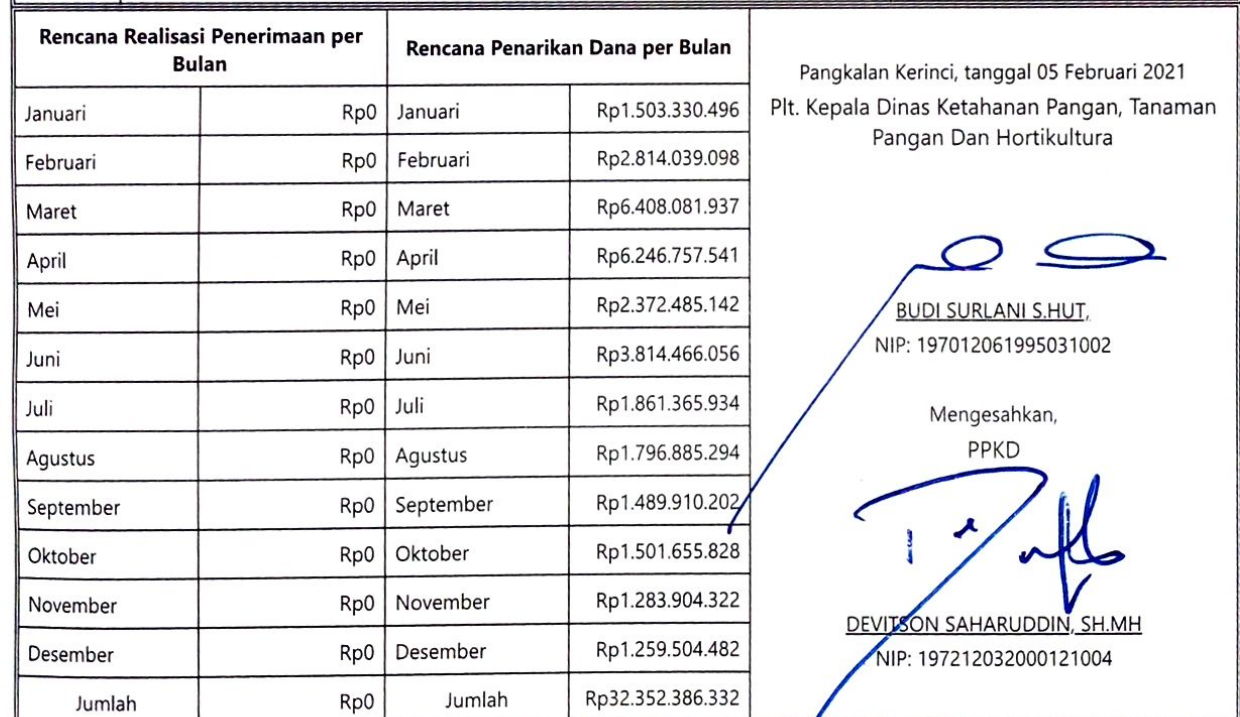 Rencana Realisasi Penerimaan per
Bulan
Rencana Penarikan Dana per Bulan
Januari Rp0 Januari Rp1.503.330.496
Februari Rp0 Februari Rp2.814.039.098
Maret Rp0 Maret Rp6.408.081.937
April Rp0 April Rp6.246.757.541
Mei Rp0 Mei Rp2.372.485.142
Juni Rp0 Juni Rp3.814.466.056
Juli Rp0 Juli Rp1.861.365.934
Agustus Rp0 Agustus Rp1.796.885.294
September Rp0 September Rp1.489.910.202
Oktober Rp0 Oktober Rp1.501.655.828
November Rp0 November Rp1.283.904.322
Desember Rp0 Desember Rp1.259.504.482
Jumlah Rp0 Jumlah Rp32.352.386.332
Pangkalan Kerinci, tanggal 05 Februari 2021
Plt. Kepala Dinas Ketahanan Pangan, Tanaman
Pangan Dan Hortikultura
BUDI SURLANI S.HUT,
NIP: 197012061995031002
Mengesahkan,
PPKD
DEVITSON SAHARUDDIN, SH.MH
NIP: 197212032000121004